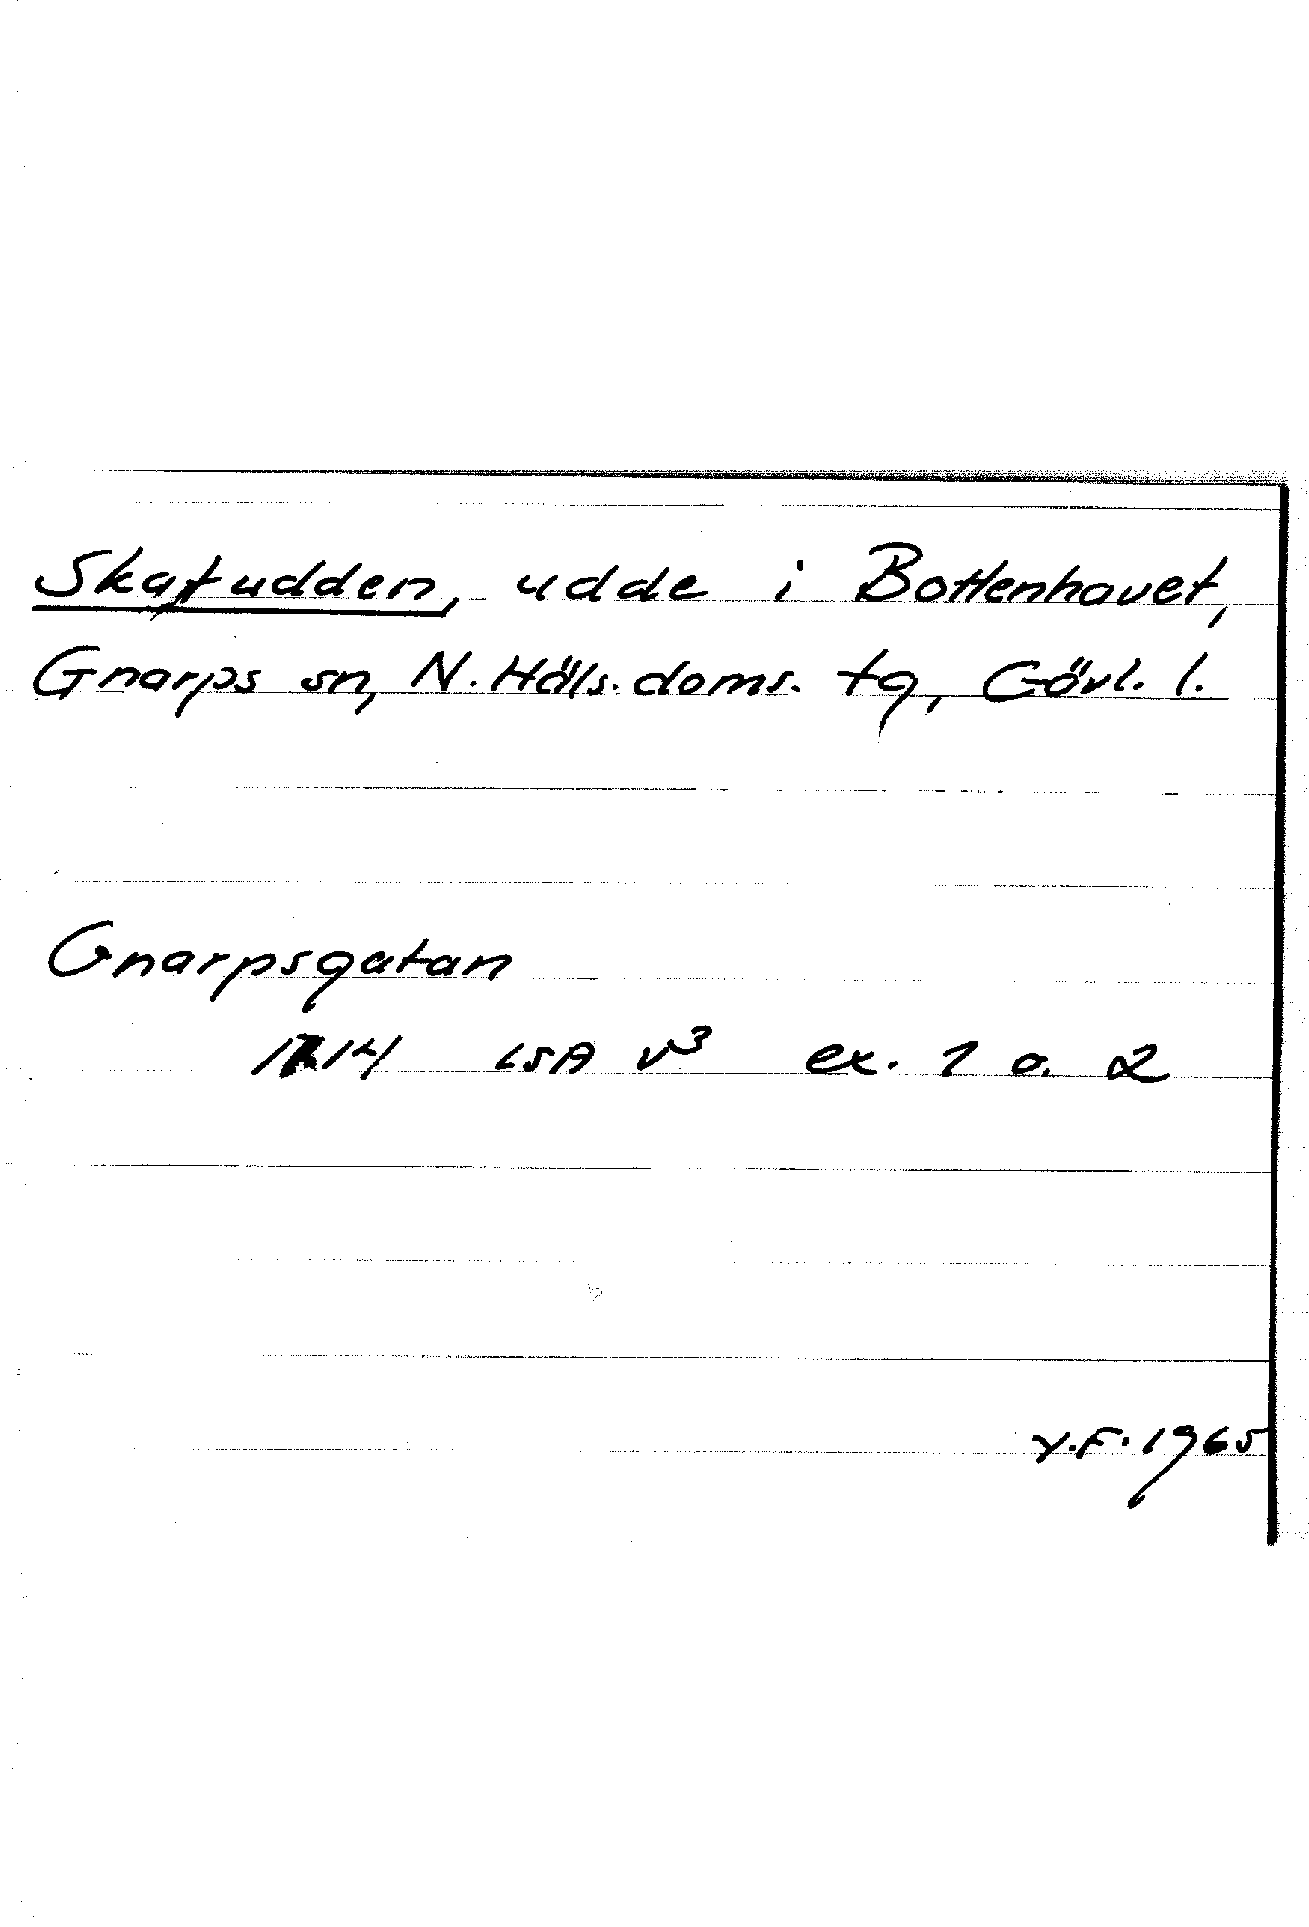 Skatudden, udde i Bottenhavet,
Gnarps sn, N. Häls. doms. tg, Gävl. l.
Gnarpsgatan
1714 LSA v³ ex. 1 o. 2
V.F. 1965